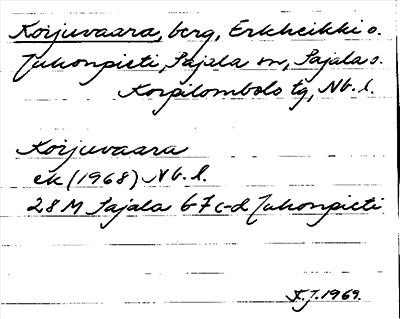 Koijuvaara, berg, Erkheikki o.
Juhonpieti, Pajala sn, Pajala o.
Korpilombolo tg, Nb. l.
Koijuvaara
ek (1968) Nb. l.
28 M Pajala 6-7 c-d Juhonpieti
F.J. 1969.